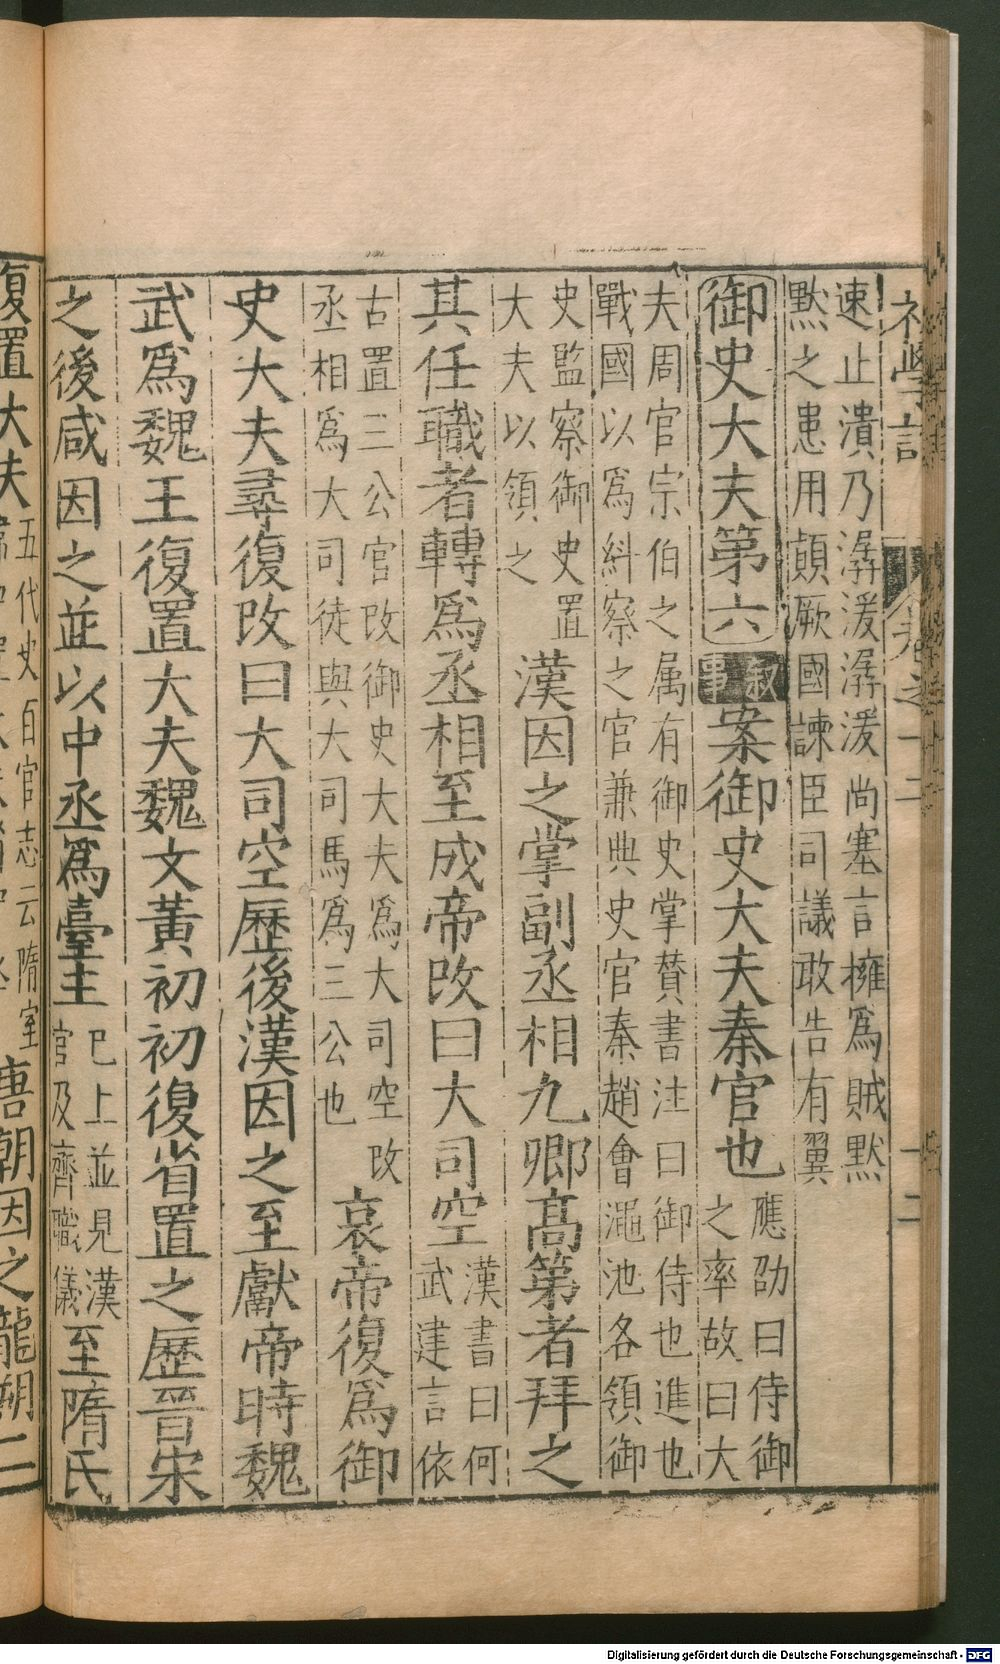 初學記 卷之十二 十二
速止潰乃潺湲潺湲尚塞言擁爲賊黙
黙之患用顛厥國諫臣司議敢告有翼
御史大夫第六 敘事 案御史大夫秦官也 應劭曰侍御
之率故曰大
夫周官宗伯之属有御史掌賛書注曰御侍也進也
戰國以爲糾察之官兼典史官秦趙會澠池各領御
史監察御史置
大夫以領之
漢因之掌副丞相九卿高第者拜之
其任職者轉爲丞相至成帝改曰大司空 漢書曰何
武建言依
古置三公官改御史大夫爲大司空改
丞相爲大司徒與大司馬爲三公也
哀帝復爲御
史大夫尋復改曰大司空歷後漢因之至獻帝時魏
武爲魏王復置大夫魏文黃初初復省置之歷晉宋
之後咸因之並以中丞爲臺主 已上並見漢
官及齊職儀
至隋氏
復置大夫 五代史百官志云隋室
唐朝因之龍朔二
Digitalisierung gefördert durch die Deutsche Forschungsgemeinschaft - DFG